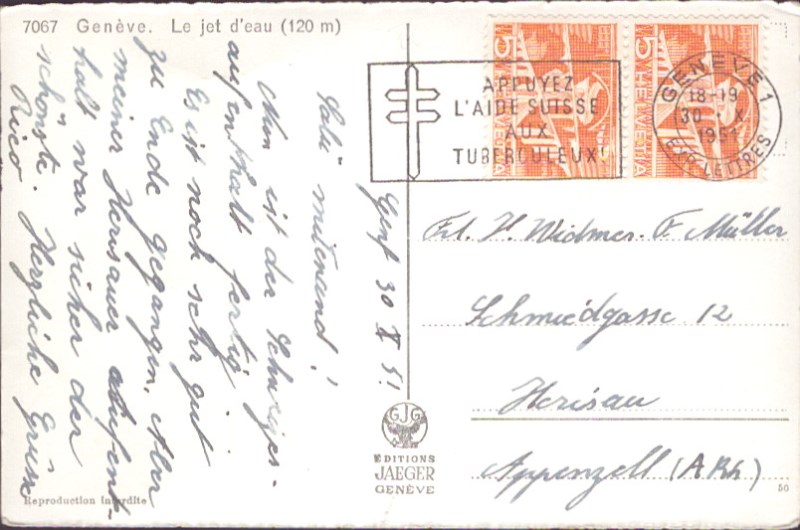 7067 Genève. Le jet d'eau (120 m)
Genf 30 X 51
Salü mitenand!
Nun ist der Schweizes-
aufenthalt fertig.
Es ist noch sehr gut
zu Ende gegangen. Aber
meiner Herisauer Aufent-
halt war sicher der
schönste. Herzliche Grüsse
Rico
Reproduction interdite
APPUYEZ
L'AIDE SUISSE
AUX
TUBERCULEUX!
5 HELVETIA
5 HELVETIA
GENÈVE 1
18-19
30. X
1951
EXP. LETTRES
Frl. H. Widmer. F. Müller
Schmiedgasse 12
Herisau
Appenzell (A Rh)
GJG
EDITIONS
JAEGER
GENÈVE
50